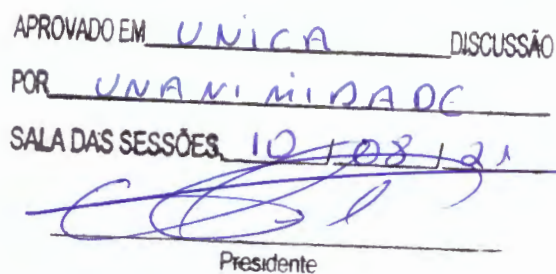 APROVADO EM UNICA DISCUSSÃO
POR UNANIMIDADE
SALA DAS SESSÕES, 10 / 08 / 21
Presidente